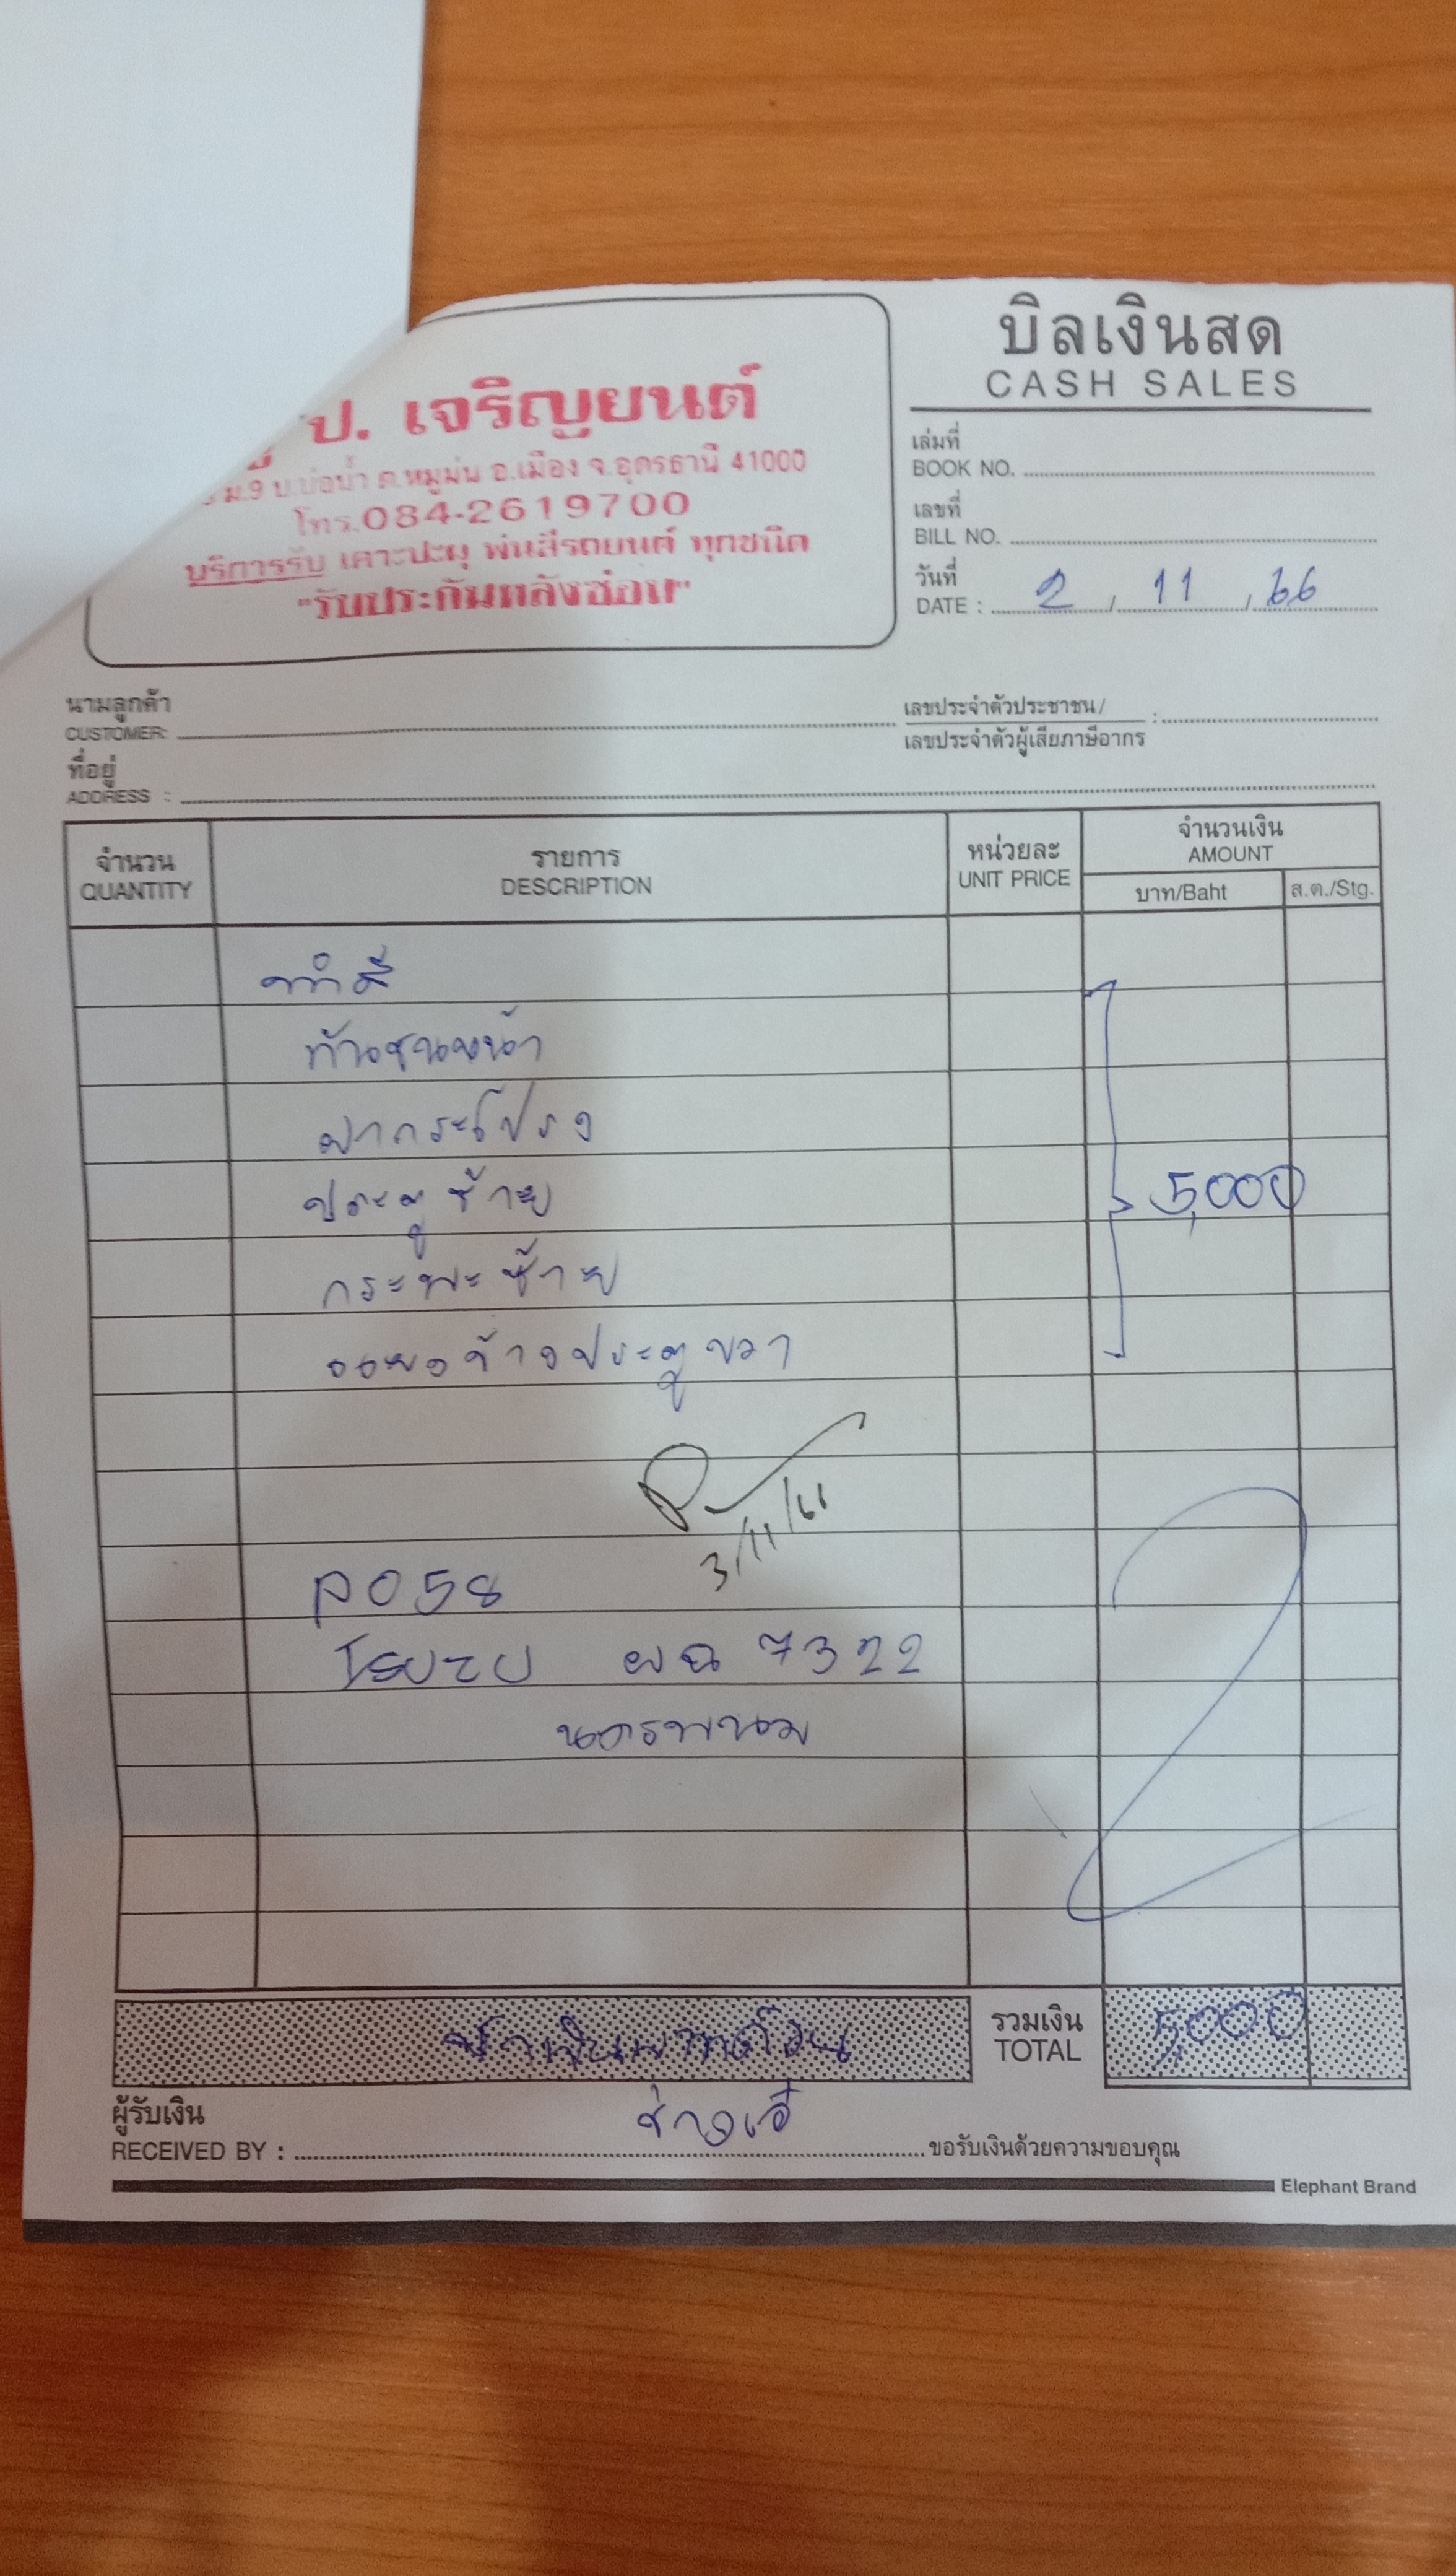 ป. เจริญยนต์
ม.9 บ.บ่อน้ำ ต.หมูม่น อ.เมือง จ.อุดรธานี 41000
โทร.084-2619700
บริการรับ เคาะปะผุ พ่นสีรถยนต์ ทุกชนิด
"รับประกันหลังซ่อม"
บิลเงินสด
CASH SALES
เล่มที่
BOOK NO.
เลขที่
BILL NO.
วันที่
DATE : 2 / 11 / 66
นามลูกค้า
CUSTOMER:
เลขประจำตัวประชาชน/ :
เลขประจำตัวผู้เสียภาษีอากร
ที่อยู่
ADDRESS :
จำนวน
QUANTITY
รายการ
DESCRIPTION
หน่วยละ
UNIT PRICE
จำนวนเงิน
AMOUNT
บาท/Baht
ส.ต./Stg.
ทำสี
กันชนหน้า
ฝากระโปรง
ประตูซ้าย
5,000
กระบะซ้าย
ประตูขวา
3/11/66
P058
ผฉ 7322
นครพนม
รวมเงิน
TOTAL
5,000
ผู้รับเงิน
RECEIVED BY :
ช่างเอ๋
ขอรับเงินด้วยความขอบคุณ
Elephant Brand